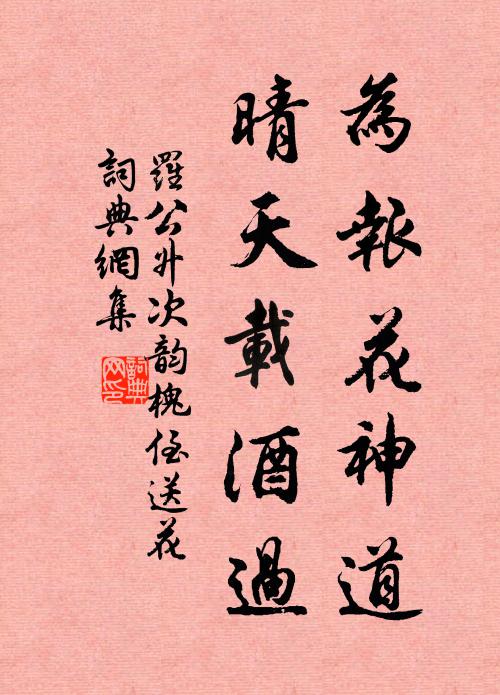 為報花神道
晴天載酒過
羅公升次韵槐侄送花
詞典網集
詞典網印